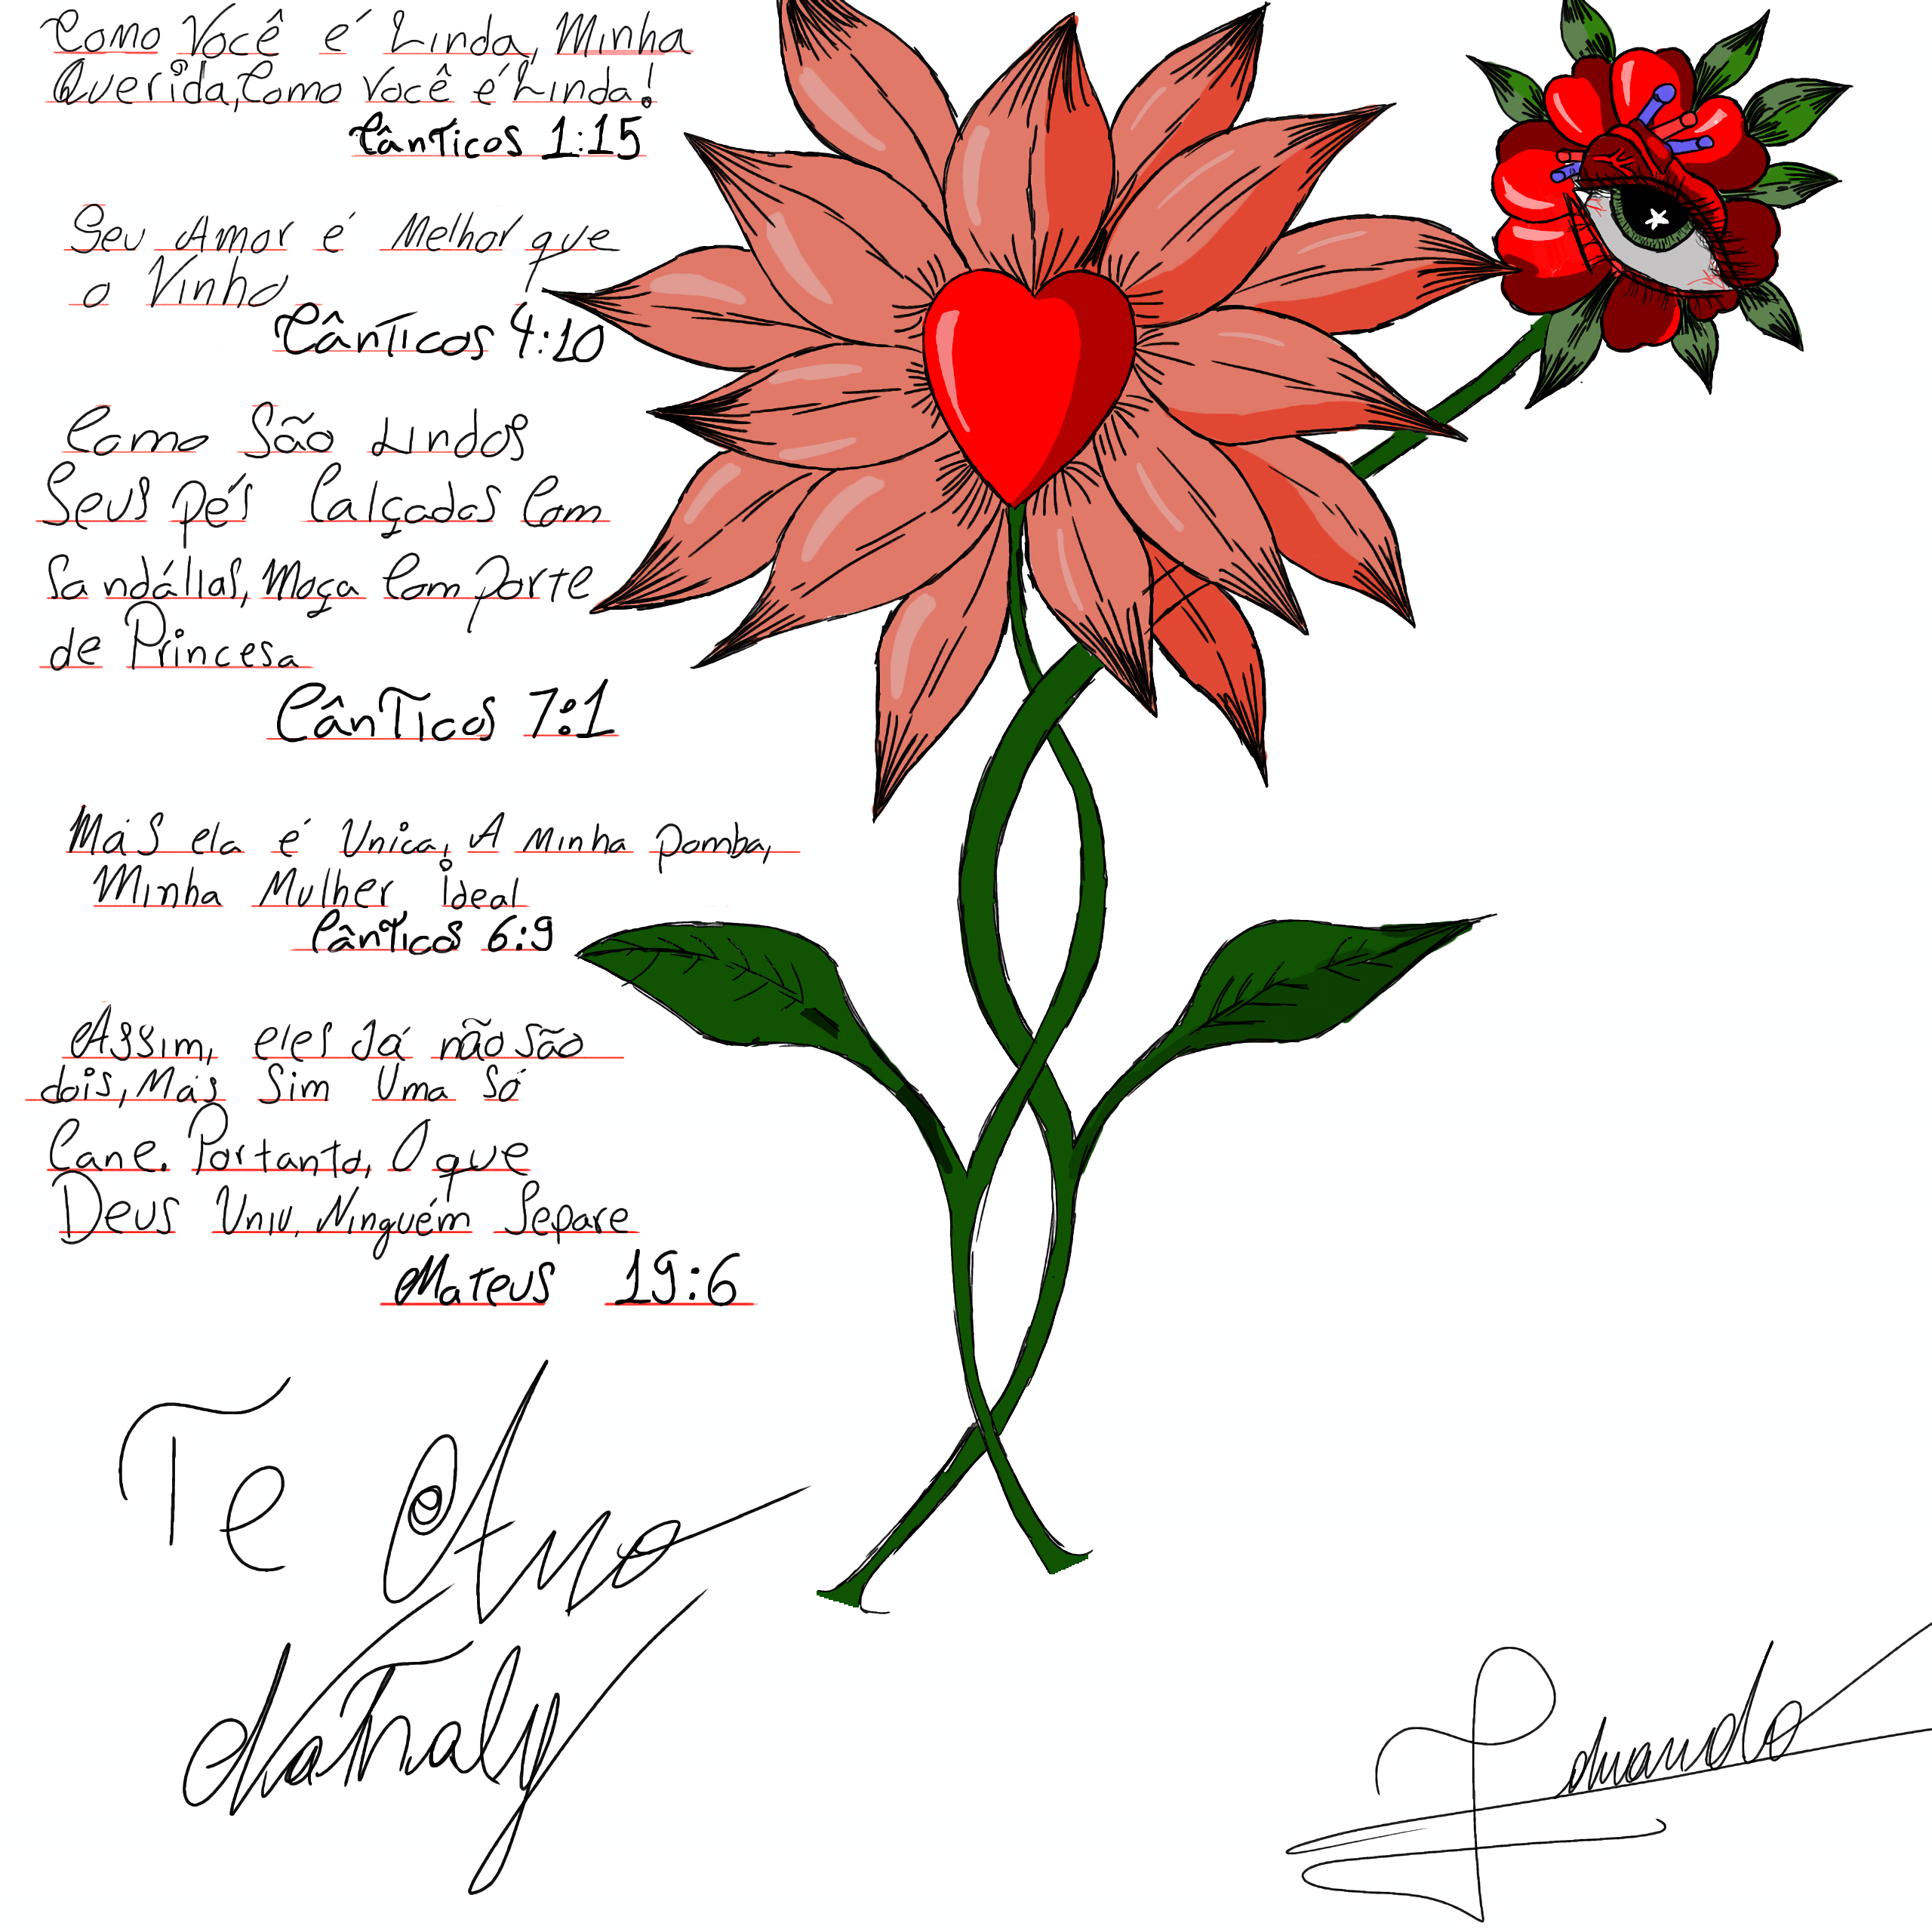 Como Você é Linda, Minha
Querida, Como Você é Linda!
Cânticos 1:15
Seu Amor é Melhor que
o Vinho
Cânticos 4:10
Como São Lindos
Seus pés Calçados Com
Sandálias, Moça Com porte
de Princesa
Cânticos 7:1
Mas ela é Unica, A Minha pomba,
Minha Mulher ideal
Cânticos 6:9
Assim, eles Já não são
dois, Mas Sim Uma Só
Cane. Portanto, O que
Deus Uniu, Ninguém Separe
Mateus 19:6
Te Amo
Nathaly
Eduardo